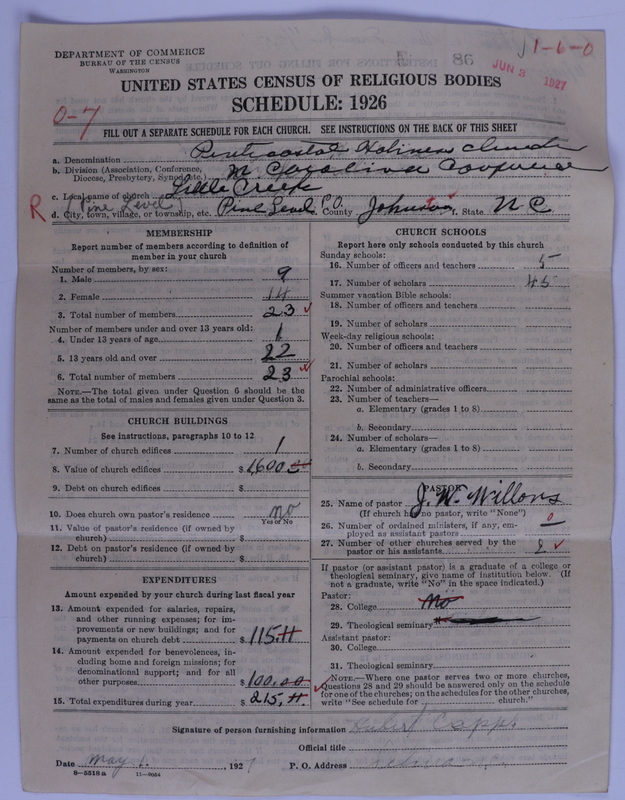 DEPARTMENT OF COMMERCE
BUREAU OF THE CENSUS
WASHINGTON
86
JUN 3 1927
1-6-0
UNITED STATES CENSUS OF RELIGIOUS BODIES
SCHEDULE: 1926
0-7
FILL OUT A SEPARATE SCHEDULE FOR EACH CHURCH. SEE INSTRUCTIONS ON THE BACK OF THIS SHEET
a. Denomination Pentecostal Holiness Church
b. Division (Association, Conference, Diocese, Presbytery, Synod, etc.) N Carolina Conference
c. Local name of church Little Creek
R Pine Level
d. City, town, village, or township, etc. Pine Level P.O. County Johnston f. State N C
MEMBERSHIP
Report number of members according to definition of
member in your church
Number of members, by sex:
1. Male 9
2. Female 14
3. Total number of members 23
Number of members under and over 13 years old:
4. Under 13 years of age 1
5. 13 years old and over 22
6. Total number of members 23
NOTE.—The total given under Question 6 should be
same as the total of males and females given under Question 3.
CHURCH BUILDINGS
See instructions, paragraphs 10 to 12
7. Number of church edifices 1
8. Value of church edifices $ 1,600
9. Debt on church edifices $
10. Does church own pastor's residence no
Yes or No
11. Value of pastor's residence (if owned by
church) $
12. Debt on pastor's residence (if owned by
church) $
EXPENDITURES
Amount expended by your church during last fiscal year
13. Amount expended for salaries, repairs,
and other running expenses; for im-
provements or new buildings; and for
payments on church debt $ 115.
14. Amount expended for benevolences, in-
cluding home and foreign missions; for
denominational support; and for all
other purposes $ 100.00
15. Total expenditures during year $ 215.
CHURCH SCHOOLS
Report here only schools conducted by this church
Sunday schools:
16. Number of officers and teachers 5
17. Number of scholars 45
Summer vacation Bible schools:
18. Number of officers and teachers
19. Number of scholars
Week-day religious schools:
20. Number of officers and teachers
21. Number of scholars
Parochial schools:
22. Number of administrative officers
23. Number of teachers—
a. Elementary (grades 1 to 8)
b. Secondary
24. Number of scholars—
a. Elementary (grades 1 to 8)
b. Secondary
PASTOR
25. Name of pastor J. W. Willons
(If church has no pastor, write "None")
26. Number of ordained ministers, if any, em-
ployed as assistant pastors 0
27. Number of other churches served by the
pastor or his assistants 2
If pastor (or assistant pastor) is a graduate of a college or
theological seminary, give name of institution below. (If
not a graduate, write "No" in the space indicated.)
Pastor:
28. College No
29. Theological seminary
Assistant pastor:
30. College
31. Theological seminary
NOTE.—Where one pastor serves two or more churches,
Questions 28 and 29 should be answered only on the schedule
for one of the churches; on the schedules for the other churches,
write "See schedule for church."
Signature of person furnishing information Hubert Capps
Official title
Date May 1, 1927 P. O. Address
8—5518 a 11—9654